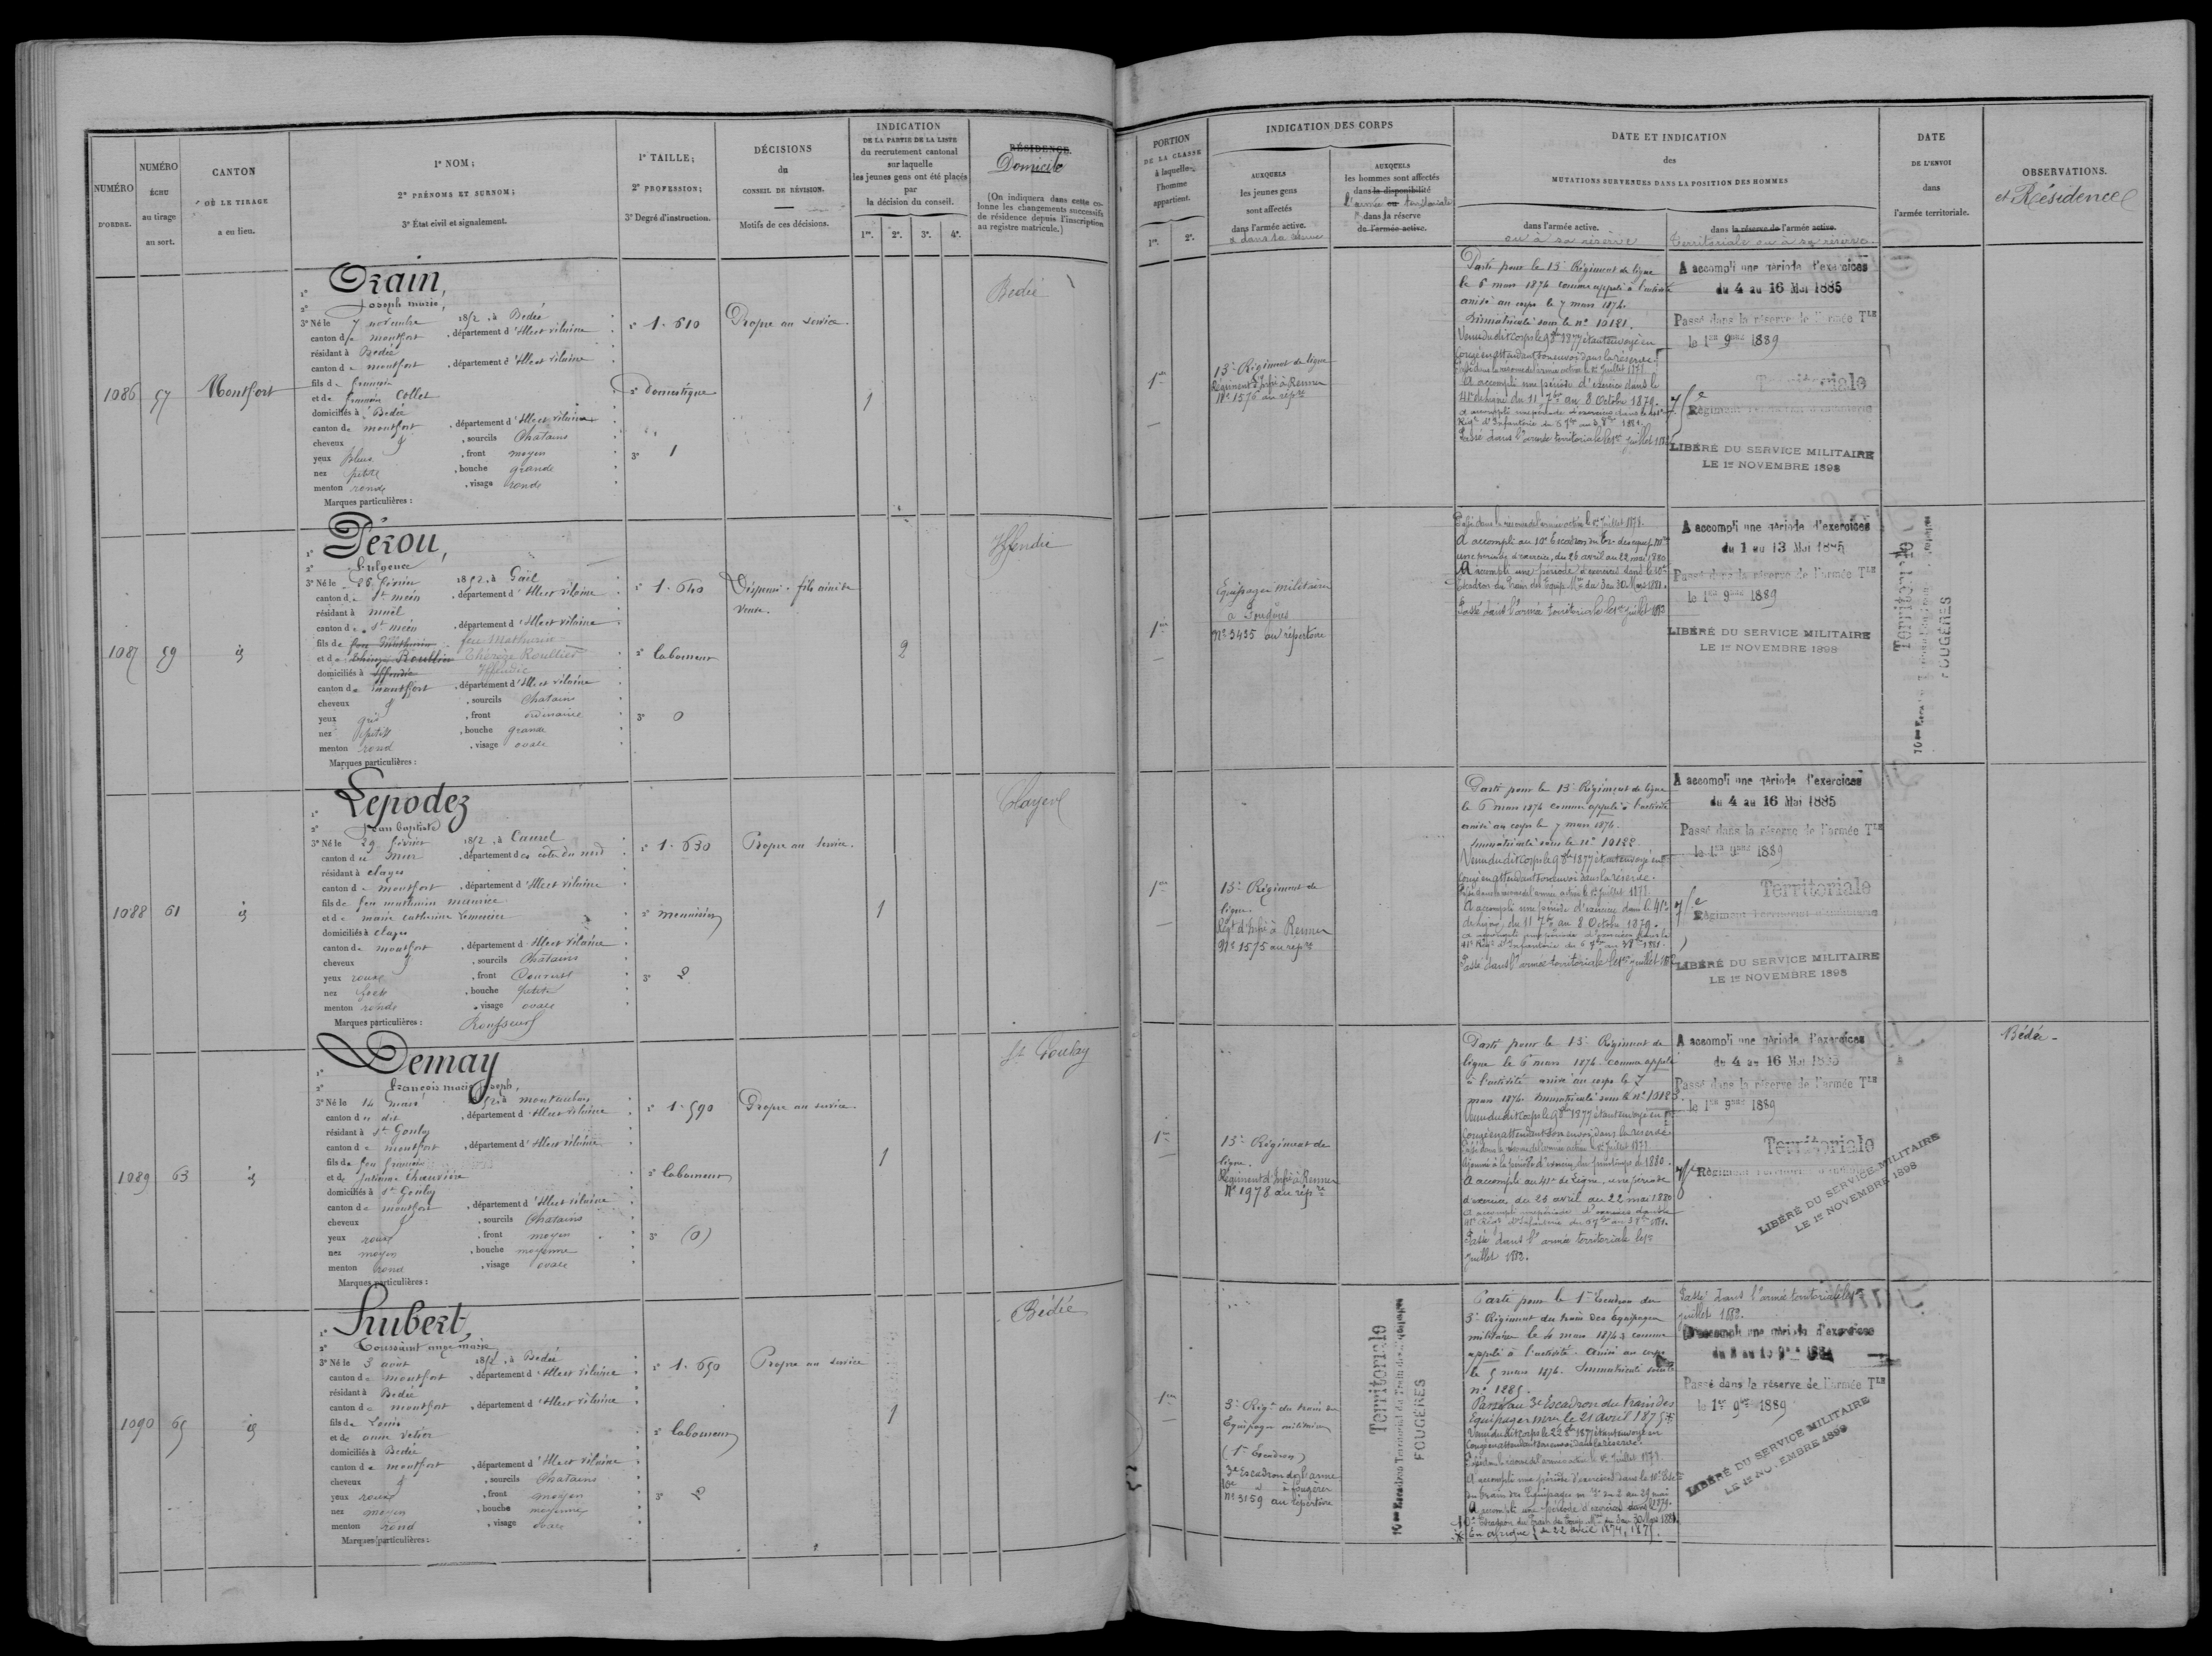 NUMÉRO D'ORDRE.
NUMÉRO ÉCHU au tirage au sort.
CANTON OÙ LE TIRAGE a eu lieu.
1° NOM;
2° PRÉNOMS ET SURNOM;
3° État civil et signalement.
1° TAILLE;
2° PROFESSION;
3° Degré d'instruction.
DÉCISIONS
du
CONSEIL DE RÉVISION.
Motifs de ces décisions.
INDICATION
DE LA PARTIE DE LA LISTE
du recrutement cantonal
sur laquelle
les jeunes gens ont été placés
par
la décision du conseil.
1re. 2e. 3e. 4e.
RÉSIDENCE.
Domicile
(On indiquera dans cette co-
lonne les changements successifs
de résidence depuis l'inscription
au registre matricule.)
1086
57
Montfort
Orain,
Joseph marie,
3° Né le 7 novembre 1852, à Bedée
canton de montfort, département d'Ille et vilaine
résidant à Bedée
canton de montfort, département d'Ille et vilaine
fils de
et de Collet
domiciliés à Bedée
canton de montfort, département d'Ille et vilaine
cheveux &, sourcils Chatains
yeux bleus, front moyen
nez petit, bouche grande
menton rond, visage rond
Marques particulières :
1° 1.610
2° Domestique
3° 1
Propre au service.
1
Bedée
1087
59
id
Pérou,
Fulgence
3° Né le 26 février 1852, à Gaël
canton de St méen, département d'Ille et vilaine
résidant à muël
canton de St méen, département d'Ille et vilaine
fils de feu Mathurin feu Mathurin
et de Thérèse Roullier
domiciliés à Iffendic Iffendic
canton de montfort, département d'Ille et vilaine
cheveux &, sourcils Chatains
yeux gris, front ordinaire
nez petit, bouche grande
menton rond, visage ovale
Marques particulières :
1° 1.640
2° laboureur
3° 0
Dispensé. fils aîné de
veuve.
2
Iffendic
1088
61
id
Lepodez
Jean baptiste
3° Né le 29 février 1852, à Caurel
canton de mur, département des côtes du nord
résidant à clayes
canton de montfort, département d'Ille et vilaine
fils de feu mathurin maurice
et de marie catherine
domiciliés à clayes
canton de montfort, département d'Ille et vilaine
cheveux &, sourcils Chatains
yeux roux, front Couvert
nez, bouche petite
menton rond, visage ovale
Marques particulières : Rousseurs
1° 1.630
2° menuisier
3° 2
Propre au service.
1
Clayes
1089
63
id
Demay
François marie Joseph,
3° Né le 14 mars 1852, à montauban
canton de dit, département d'Ille et vilaine
résidant à St Gonlay
canton de montfort, département d'Ille et vilaine
fils de feu françois
et de Julienne Chauvière
domiciliés à St Gonlay
canton de montfort, département d'Ille et vilaine
cheveux &, sourcils Chatains
yeux roux, front moyen
nez moyen, bouche moyenne
menton rond, visage ovale
Marques particulières :
1° 1.590
2° laboureur
3° (0)
Propre au service.
1
St Gonlay
1090
65
id
Hubert,
Toussaint ange marie
3° Né le 3 août 1852, à Bedée
canton de montfort, département d'Ille et vilaine
résidant à Bedée
canton de montfort, département d'Ille et vilaine
fils de Louis
et de anne
domiciliés à Bedée
canton de montfort, département d'Ille et vilaine
cheveux &, sourcils Chatains
yeux roux, front moyen
nez moyen, bouche moyenne
menton rond, visage ovale
Marques particulières :
1° 1.650
2° laboureur
3° 2
Propre au service
1
Bédée
PORTION
DE LA CLASSE
à laquelle
l'homme
appartient.
1re. 2e.
INDICATION DES CORPS
AUXQUELS
les jeunes gens
sont affectés
dans l'armée active.
& dans sa réserve
AUXQUELS
les hommes sont affectés
dans la disponibilité
l'armée ou territoriale
& dans la réserve
de l'armée active.
DATE ET INDICATION
des
MUTATIONS SURVENUES DANS LA POSITION DES HOMMES
dans l'armée active.
ou à sa réserve
dans la réserve de l'armée active.
Territoriale ou à sa réserve.
DATE
DE L'ENVOI
dans
l'armée territoriale.
OBSERVATIONS.
et Résidence
1re
13e Régiment de ligne
Régiment d'Infie à Rennes
No 1576 au répre
Parti pour le 13e Régiment de ligne
le 6 mars 1874 comme appelé à l'activité
arrivé au corps le 7 mars 1874.
Immatriculé sous le no 10181.
Venu dudit corps le 9 8bre 1877 étant envoyé en
congé en attendant son envoi dans la réserve.
Passé dans la réserve de l'armée active le 1er Juillet 1878
A accompli une période d'exercice dans le
41e de ligne du 11 7bre au 8 Octobre 1879.
a accompli une période d'exercice dans le 41e
Régt d'Infanterie du 6 7bre au 3 8bre 1881.
Passé dans l'armée territoriale le 1er juillet 1882
A accompli une période d'exercices
du 4 au 16 Mai 1885
Passé dans la réserve de l'armée TLE
le 1er 9bre 1889
Territoriale
75e Régiment Territorial d'Infanterie
LIBÉRÉ DU SERVICE MILITAIRE
LE 1er NOVEMBRE 1898
1re
Equipages militaires
à Fougères
No 3435 au répertoire
Passé dans la réserve de l'armée active le 1er Juillet 1878.
A accompli au 10e Escadron du Tr. des equip. Mres
une période d'exercice, du 26 avril au 22 mai 1880
A accompli une période d'exercices dans le 10e
Escadron du Train des Equip. Mres du 3 au 30 Mars 1881.
Passé dans l'armée territoriale le 1er Juillet 1883
A accompli une période d'exercices
du 1 au 13 Mai 1885
Passé dans la réserve de l'armée TLE
le 1er 9bre 1889
LIBÉRÉ DU SERVICE MILITAIRE
LE 1er NOVEMBRE 1898
Territoriale
FOUGÈRES
1re
13e Régiment de
ligne.
Régt d'Infie à Rennes
No 1575 au répre
Parti pour le 13e Régiment de ligne
le 6 mars 1874 comme appelé à l'activité
arrivé au corps le 7 mars 1874.
Immatriculé sous le no 10182
Venu dudit corps le 9 8bre 1877 étant envoyé en
congé en attendant son envoi dans la réserve.
Passé dans la réserve de l'armée active le 1er Juillet 1878
A accompli une période d'exercice dans le 41e
de ligne, du 11 7bre au 8 Octobre 1879.
a accompli une période d'exercices dans le
41e Régt d'Infanterie du 6 7bre au 3 8bre 1881.
Passé dans l'armée territoriale le 1er juillet 1882
A accompli une période d'exercices
du 4 au 16 Mai 1885
Passé dans la réserve de l'armée TLE
le 1er 9bre 1889
Territoriale
75e Régiment Territorial d'Infanterie
LIBÉRÉ DU SERVICE MILITAIRE
LE 1er NOVEMBRE 1898
1re
13e Régiment de
ligne.
Régiment d'Infie à Rennes
No 1978 au répre
Parti pour le 13e Régiment de
ligne le 6 mars 1874 comme appelé
à l'activité arrivé au corps le 7
mars 1874. Immatriculé sous le no 10183
Venu dudit corps le 9 8bre 1877 étant envoyé en
congé en attendant son envoi dans la réserve
Passé dans la réserve de l'armée active le 1er Juillet 1878
Ajourné à la période d'exercice du printemps de 1880.
A accompli au 41e de Ligne, une période
d'exercice du 26 avril au 22 mai 1880
A accompli une période d'exercices dans le
41e Régt d'Infanterie du 6 7bre au 3 8bre 1881.
Passé dans l'armée territoriale le 1er
Juillet 1882.
A accompli une période d'exercices
du 4 au 16 Mai 1885
Passé dans la réserve de l'armée TLE
le 1er 9bre 1889
Territoriale
75e Régiment Territorial d'Infanterie
LIBÉRÉ DU SERVICE MILITAIRE
LE 1er NOVEMBRE 1898
Bédée -
1re
3e Régt du train des
Equipages militaires
(1er Escadron)
3e Escadron de l'arme
10e d° à fougères
No 3159 au répertoire
Territoriale
10me Escadron Territorial du Train des Equipages
FOUGÈRES
Parti pour le 1er Escadron du
3e Régiment du train des Equipages
militaires le 4 mars 1874 comme
appelé à l'activité. Arrivé au corps
le 5 mars 1874. Immatriculé sous le
no 1285.
Passé au 3e Escadron du train des
Equipages mres le 21 avril 1875 *
Venu dudit corps le 22 8bre 1877 étant envoyé en
congé en attendant son envoi dans la réserve.
Passé dans la réserve de l'armée active le 1er Juillet 1878.
A accompli une période d'exercices dans le 10e Esc
du train des Equipages m. du 2 au 29 mai
1879.
A accompli une période d'exercices dans le
10e Escadron du Train des Equip. Mres du 3 au 30 Mars 1881.
* En afrique du 22 avril 1874, 1875.
Passé dans l'armée territoriale le 1er
juillet 1882.
A accompli une période d'exercices
Passé dans la réserve de l'armée TLE
le 1er 9bre 1889
LIBÉRÉ DU SERVICE MILITAIRE
LE 1er NOVEMBRE 1898